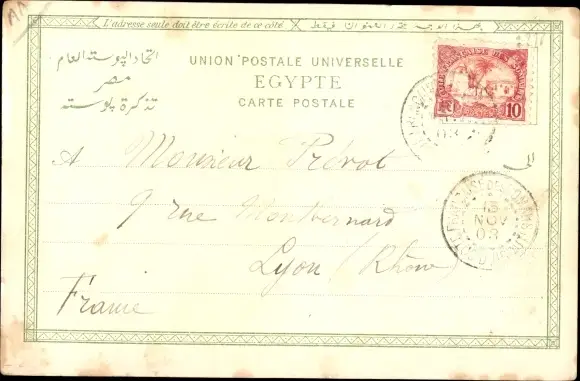 AA
L'adresse seule doit être écrite de ce côté
UNION POSTALE UNIVERSELLE
EGYPTE
CARTE POSTALE
اتحاد البوسته العام
مصر
تذكرة بوسته
10
A Monsieur Prévot
9 rue Montbernard
Lyon (Rhône)
France
15
NOV
03